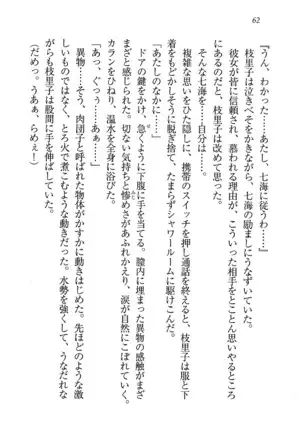 62
「うん、わかった……あたし、七海に従うわ……」
枝里子は泣きべそをかきながら、七海の励ましにうなずいていた。
彼女が皆に信頼され、慕われる理由が、こういった相手をとことん思いやるところ
だろうと、枝里子は改めて思った。
そんな七海を……自分は……。
複雑な思いをひた隠しに、携帯のスイッチを押し通話を終えると、枝里子は服と下
着をもどかしそうに脱ぎ捨て、たまらずシャワールームに駆けこんだ。
「あたしのなかに……」
ドアの鍵をかけ、急ぐように下腹に手を当てる。膣内に埋まった異物の感触がまざ
まざと感じられた。切ない気持ちと惨めさがあふれかえり、涙が自然にこぼれていく。
カランをひねり、温水を全身に浴びた。
「あっ、ぐっう……あぁ……」
異物……肉団子と呼ばれた物体がかすかに動きはじめた。先ほどのような激
しいものではなく、とろ火で煮こむような動きだった。水勢を強くして、うなだれな
がらも枝里子は股間に手を伸ばしていた。
（だめっ。うあぁ、らめぇ！）